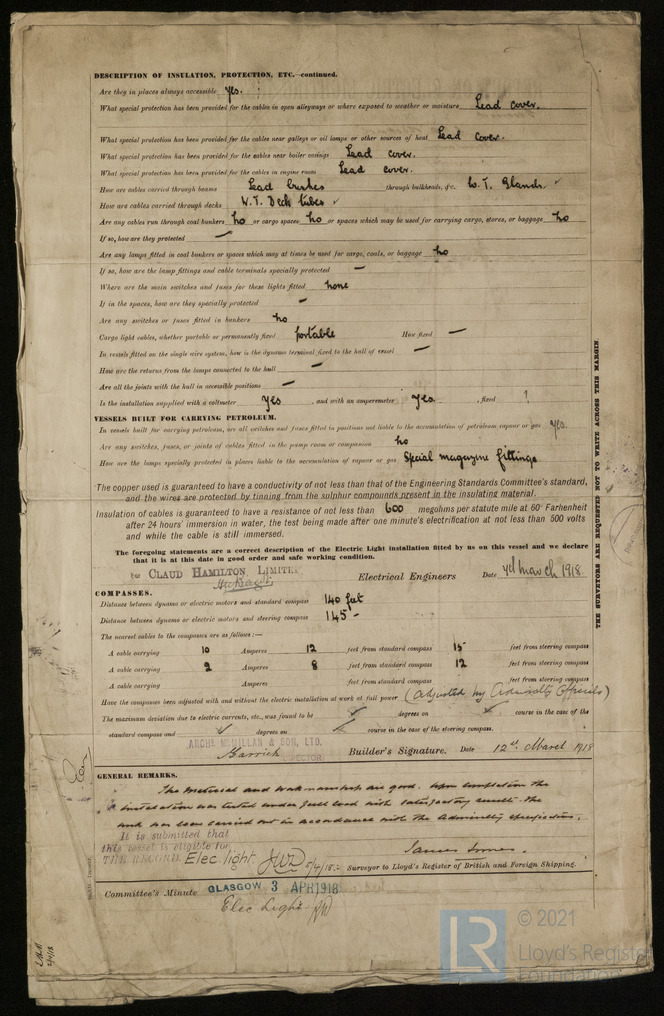 DESCRIPTION OF INSULATION, PROTECTION, ETC.—continued.
Are they in places always accessible yes.
What special protection has been provided for the cables in open alleyways or where exposed to weather or moisture Lead cover.
What special protection has been provided for the cables near galleys or oil lamps or other sources of heat Lead cover.
What special protection has been provided for the cables near boiler casings Lead cover.
What special protection has been provided for the cables in engine room Lead cover.
How are cables carried through beams Lead bushes through bulkheads, &c. W.T. Glands. ✓
How are cables carried through decks W.T. Deck tubes ✓
Are any cables run through coal bunkers no or cargo spaces no or spaces which may be used for carrying cargo, stores, or baggage no
If so, how are they protected —
Are any lamps fitted in coal bunkers or spaces which may at times be used for cargo, coals, or baggage no
If so, how are the lamp fittings and cable terminals specially protected —
Where are the main switches and fuses for these lights fitted none
If in the spaces, how are they specially protected —
Are any switches or fuses fitted in bunkers no
Cargo light cables, whether portable or permanently fixed portable How fixed —
In vessels fitted on the single wire system, how is the dynamo terminal fixed to the hull of vessel —
How are the returns from the lamps connected to the hull —
Are all the joints with the hull in accessible positions —
Is the installation supplied with a voltmeter yes , and with an amperemeter yes , fixed
VESSELS BUILT FOR CARRYING PETROLEUM.
In vessels built for carrying petroleum, are all switches and fuses fitted in positions not liable to the accumulation of petroleum vapour or gas yes.
Are any switches, fuses, or joints of cables fitted in the pump room or companion no
How are the lamps specially protected in places liable to the accumulation of vapour or gas Special magazine fittings
The copper used is guaranteed to have a conductivity of not less than that of the Engineering Standards Committee's standard,
and the wires are protected by tinning from the sulphur compounds present in the insulating material.
Insulation of cables is guaranteed to have a resistance of not less than 600 megohms per statute mile at 60° Farhenheit
after 24 hours' immersion in water, the test being made after one minute's electrification at not less than 500 volts
and while the cable is still immersed.
The foregoing statements are a correct description of the Electric Light installation fitted by us on this vessel and we declare
that it is at this date in good order and safe working condition.
for CLAUD HAMILTON LIMITED Electrical Engineers Date March 1918.
COMPASSES.
Distance between dynamo or electric motors and standard compass 140 feet
Distance between dynamo or electric motors and steering compass 145 -
The nearest cables to the compasses are as follows:—
A cable carrying 10 Amperes 12 feet from standard compass 15 feet from steering compass
A cable carrying 2 Amperes 8 feet from standard compass 12 feet from steering compass
A cable carrying Amperes feet from standard compass feet from steering compass
Have the compasses been adjusted with and without the electric installation at work at full power (Adjusted by Admiralty Officials)
The maximum deviation due to electric currents, etc., was found to be ✓ degrees on ✓ course in the case of the
standard compass and ✓ degrees on ✓ course in the case of the steering compass.
ARCHD. McMILLAN & SON, LTD.
DIRECTOR Builder's Signature. Date 12th March 1918
GENERAL REMARKS.
The material and workmanship are good. Upon completion the
installation was tested under full load with satisfactory results. The
work has been carried out in accordance with the Admiralty specification.
It is submitted that
this vessel is eligible for
THE RECORD. Elec light. JWD 5/4/18
James Innes.
Surveyor to Lloyd's Register of British and Foreign Shipping.
Committee's Minute GLASGOW 3 APR 1918
Elec Light
THE SURVEYORS ARE REQUESTED NOT TO WRITE ACROSS THIS MARGIN.
LR
© 2021
Lloyd's Register
Foundation